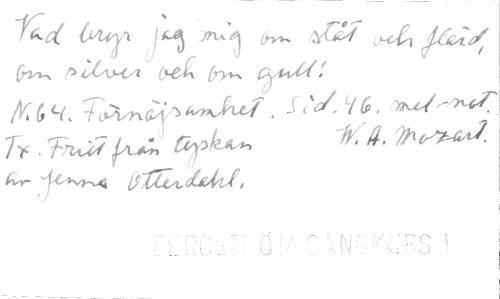 Vad bryr jag mig om ståt och flärd,
om silver och om gull!
N.64. Förnöjsamhet. Sid. 46. mel-not.
W. A. Mozart.
Tx. Fritt från tyskan
av Jenna Otterdahl.
BERGSTRÖM SÅNGKURS I